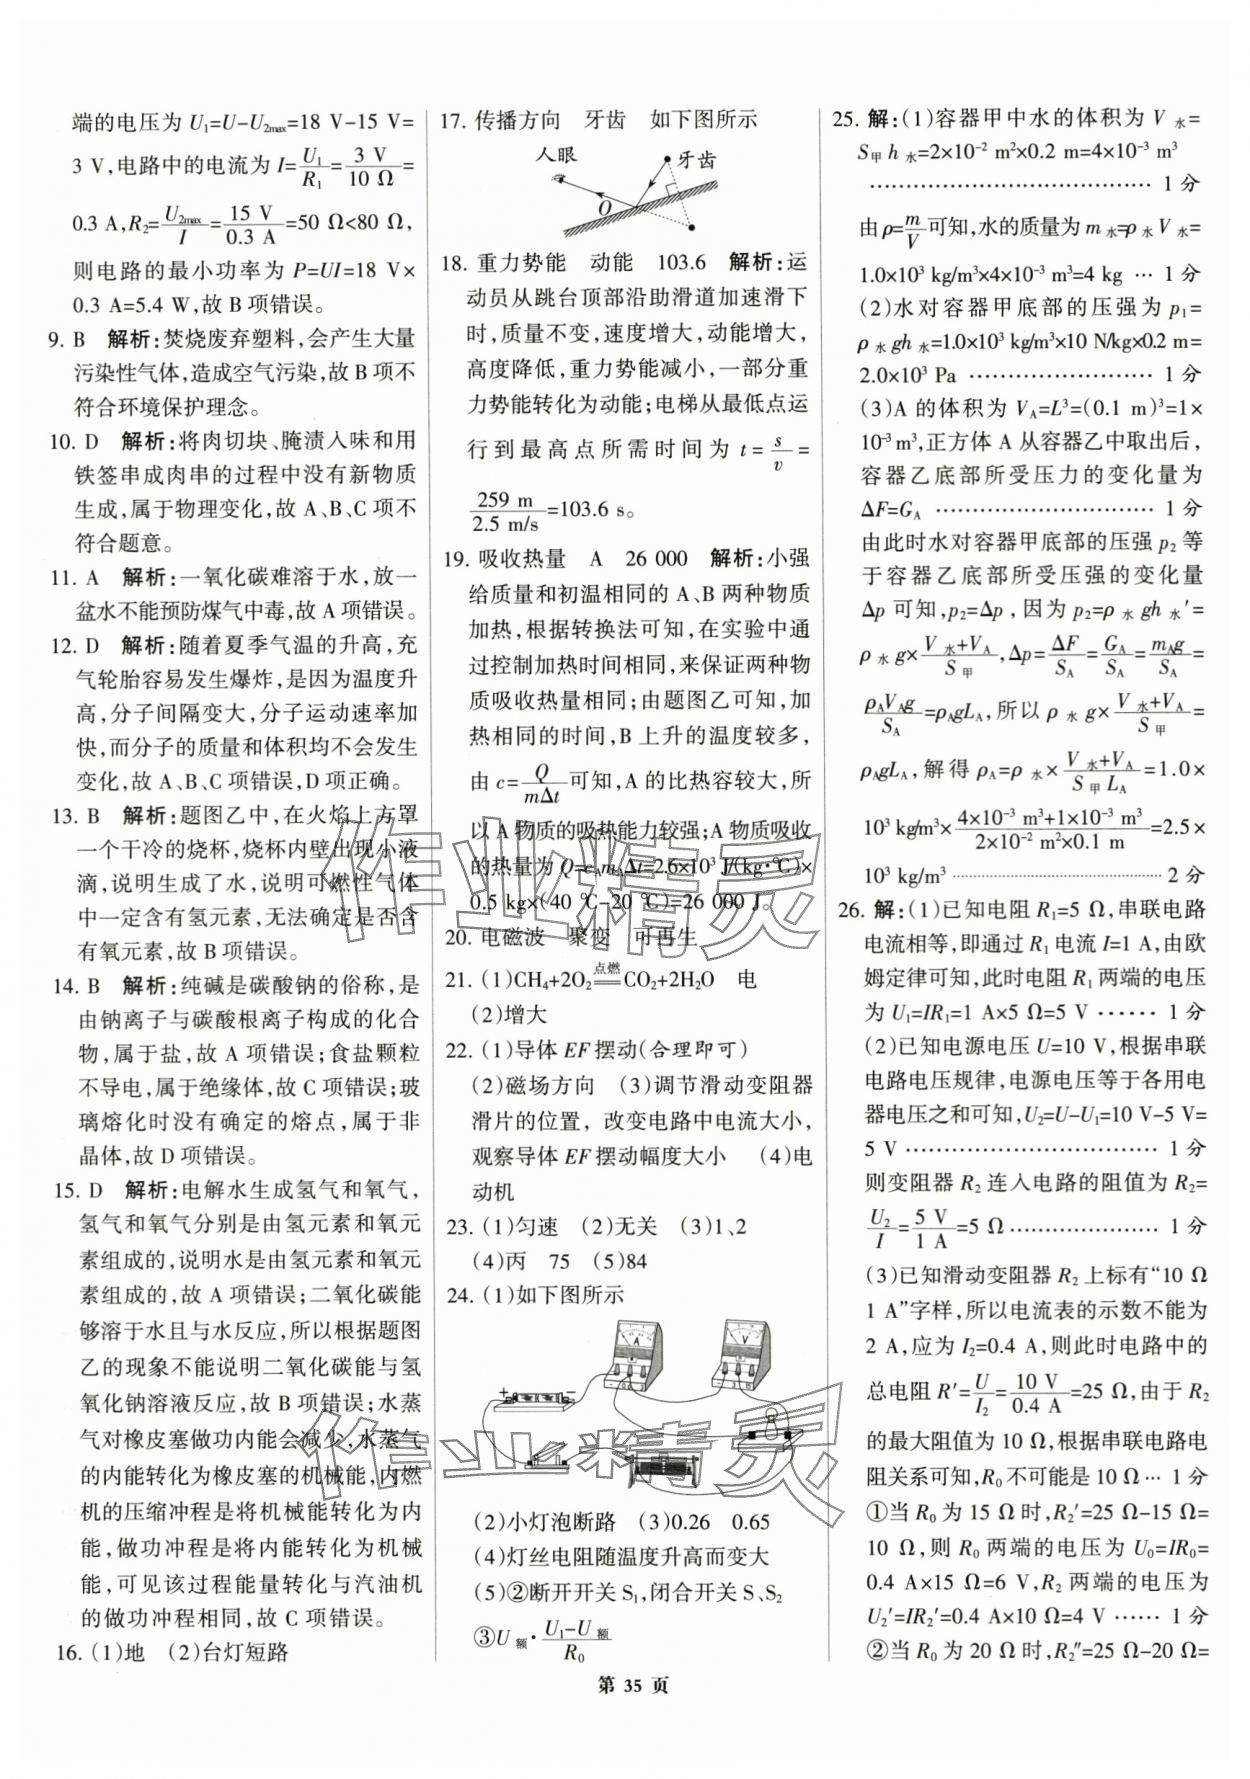 端的电压为 U₁=U-U₂ₘₐₓ=18 V-15 V=
3 V,电路中的电流为 I=U₁/R₁=3 V/10 Ω=
0.3 A,R₂=U₂ₘₐₓ/I=15 V/0.3 A=50 Ω<80 Ω,
则电路的最小功率为 P=UI=18 V×
0.3 A=5.4 W,故 B 项错误。
9. B 解析:焚烧废弃塑料,会产生大量
污染性气体,造成空气污染,故 B 项不
符合环境保护理念。
10. D 解析:将肉切块、腌渍入味和用
铁签串成肉串的过程中没有新物质
生成,属于物理变化,故 A、B、C 项不
符合题意。
11. A 解析:一氧化碳难溶于水,放一
盆水不能预防煤气中毒,故 A 项错误。
12. D 解析:随着夏季气温的升高,充
气轮胎容易发生爆炸,是因为温度升
高,分子间隔变大,分子运动速率加
快,而分子的质量和体积均不会发生
变化,故 A、B、C 项错误,D 项正确。
13. B 解析:题图乙中,在火焰上方罩
一个干冷的烧杯,烧杯内壁出现小液
滴,说明生成了水,说明可燃性气体
中一定含有氢元素,无法确定是否含
有氧元素,故 B 项错误。
14. B 解析:纯碱是碳酸钠的俗称,是
由钠离子与碳酸根离子构成的化合
物,属于盐,故 A 项错误;食盐颗粒
不导电,属于绝缘体,故 C 项错误;玻
璃熔化时没有确定的熔点,属于非
晶体,故 D 项错误。
15. D 解析:电解水生成氢气和氧气,
氢气和氧气分别是由氢元素和氧元
素组成的,说明水是由氢元素和氧元
素组成的,故 A 项错误;二氧化碳能
够溶于水且与水反应,所以根据题图
乙的现象不能说明二氧化碳能与氢
氧化钠溶液反应,故 B 项错误;水蒸
气对橡皮塞做功内能会减少,水蒸气
的内能转化为橡皮塞的机械能,内燃
机的压缩冲程是将机械能转化为内
能,做功冲程是将内能转化为机械
能,可见该过程能量转化与汽油机
的做功冲程相同,故 C 项错误。
16. (1)地 (2)台灯短路
17. 传播方向 牙齿 如下图所示
人眼
牙齿
O
18. 重力势能 动能 103.6 解析:运
动员从跳台顶部沿助滑道加速滑下
时,质量不变,速度增大,动能增大,
高度降低,重力势能减小,一部分重
力势能转化为动能;电梯从最低点运
行到最高点所需时间为 t=s/v=
259 m/2.5 m/s=103.6 s。
19. 吸收热量 A 26 000 解析:小强
给质量和初温相同的 A、B 两种物质
加热,根据转换法可知,在实验中通
过控制加热时间相同,来保证两种物
质吸收热量相同;由题图乙可知,加
热相同的时间,B 上升的温度较多,
由 c=Q/mΔt可知,A 的比热容较大,所
以 A 物质的吸热能力较强;A 物质吸收
的热量为 Q=c_A m_A Δt=2.6×10³ J/(kg·℃)×
0.5 kg×(40 ℃-20 ℃)=26 000 J。
20. 电磁波 聚变 可再生
21. (1)CH₄+2O₂ 点燃═ CO₂+2H₂O 电
(2)增大
22. (1)导体 EF 摆动(合理即可)
(2)磁场方向 (3)调节滑动变阻器
滑片的位置,改变电路中电流大小,
观察导体 EF 摆动幅度大小 (4)电
动机
23. (1)匀速 (2)无关 (3)1、2
(4)丙 75 (5)84
24. (1)如下图所示
A
V
+ -
(2)小灯泡断路 (3)0.26 0.65
(4)灯丝电阻随温度升高而变大
(5)②断开开关 S₁,闭合开关 S、S₂
③U额·(U₁-U额)/R₀
25. 解:(1)容器甲中水的体积为 V水=
S甲 h水=2×10⁻² m²×0.2 m=4×10⁻³ m³
………………………………… 1 分
由 ρ=m/V可知,水的质量为 m水=ρ水 V水=
1.0×10³ kg/m³×4×10⁻³ m³=4 kg … 1 分
(2)水对容器甲底部的压强为 p₁=
ρ水 gh水=1.0×10³ kg/m³×10 N/kg×0.2 m=
2.0×10³ Pa …………………… 1 分
(3)A 的体积为 V_A=L³=(0.1 m)³=1×
10⁻³ m³,正方体 A 从容器乙中取出后,
容器乙底部所受压力的变化量为
ΔF=G_A ………………………… 1 分
由此时水对容器甲底部的压强 p₂ 等
于容器乙底部所受压强的变化量
Δp 可知,p₂=Δp,因为 p₂=ρ水 gh水′=
ρ水 g×(V水+V_A)/S甲,Δp=ΔF/S_A=G_A/S_A=m_A g/S_A=
ρ_A V_A g/S_A=ρ_A gL_A,所以 ρ水 g×(V水+V_A)/S甲=
ρ_A gL_A,解得 ρ_A=ρ水×(V水+V_A)/(S甲 L_A)=1.0×
10³ kg/m³×(4×10⁻³ m³+1×10⁻³ m³)/(2×10⁻² m²×0.1 m)=2.5×
10³ kg/m³ ……………………… 2 分
26. 解:(1)已知电阻 R₁=5 Ω,串联电路
电流相等,即通过 R₁ 电流 I=1 A,由欧
姆定律可知,此时电阻 R₁ 两端的电压
为 U₁=IR₁=1 A×5 Ω=5 V …… 1 分
(2)已知电源电压 U=10 V,根据串联
电路电压规律,电源电压等于各用电
器电压之和可知,U₂=U-U₁=10 V-5 V=
5 V …………………………… 1 分
则变阻器 R₂ 连入电路的阻值为 R₂=
U₂/I=5 V/1 A=5 Ω ………………… 1 分
(3)已知滑动变阻器 R₂ 上标有“10 Ω
1 A”字样,所以电流表的示数不能为
2 A,应为 I₂=0.4 A,则此时电路中的
总电阻 R′=U/I₂=10 V/0.4 A=25 Ω,由于 R₂
的最大阻值为 10 Ω,根据串联电路电
阻关系可知,R₀ 不可能是 10 Ω … 1 分
①当 R₀ 为 15 Ω 时,R₂′=25 Ω-15 Ω=
10 Ω,则 R₀ 两端的电压为 U₀=IR₀=
0.4 A×15 Ω=6 V,R₂ 两端的电压为
U₂′=IR₂′=0.4 A×10 Ω=4 V …… 1 分
②当 R₀ 为 20 Ω 时,R₂″=25 Ω-20 Ω=
第 35 页
作业精灵
作业精灵